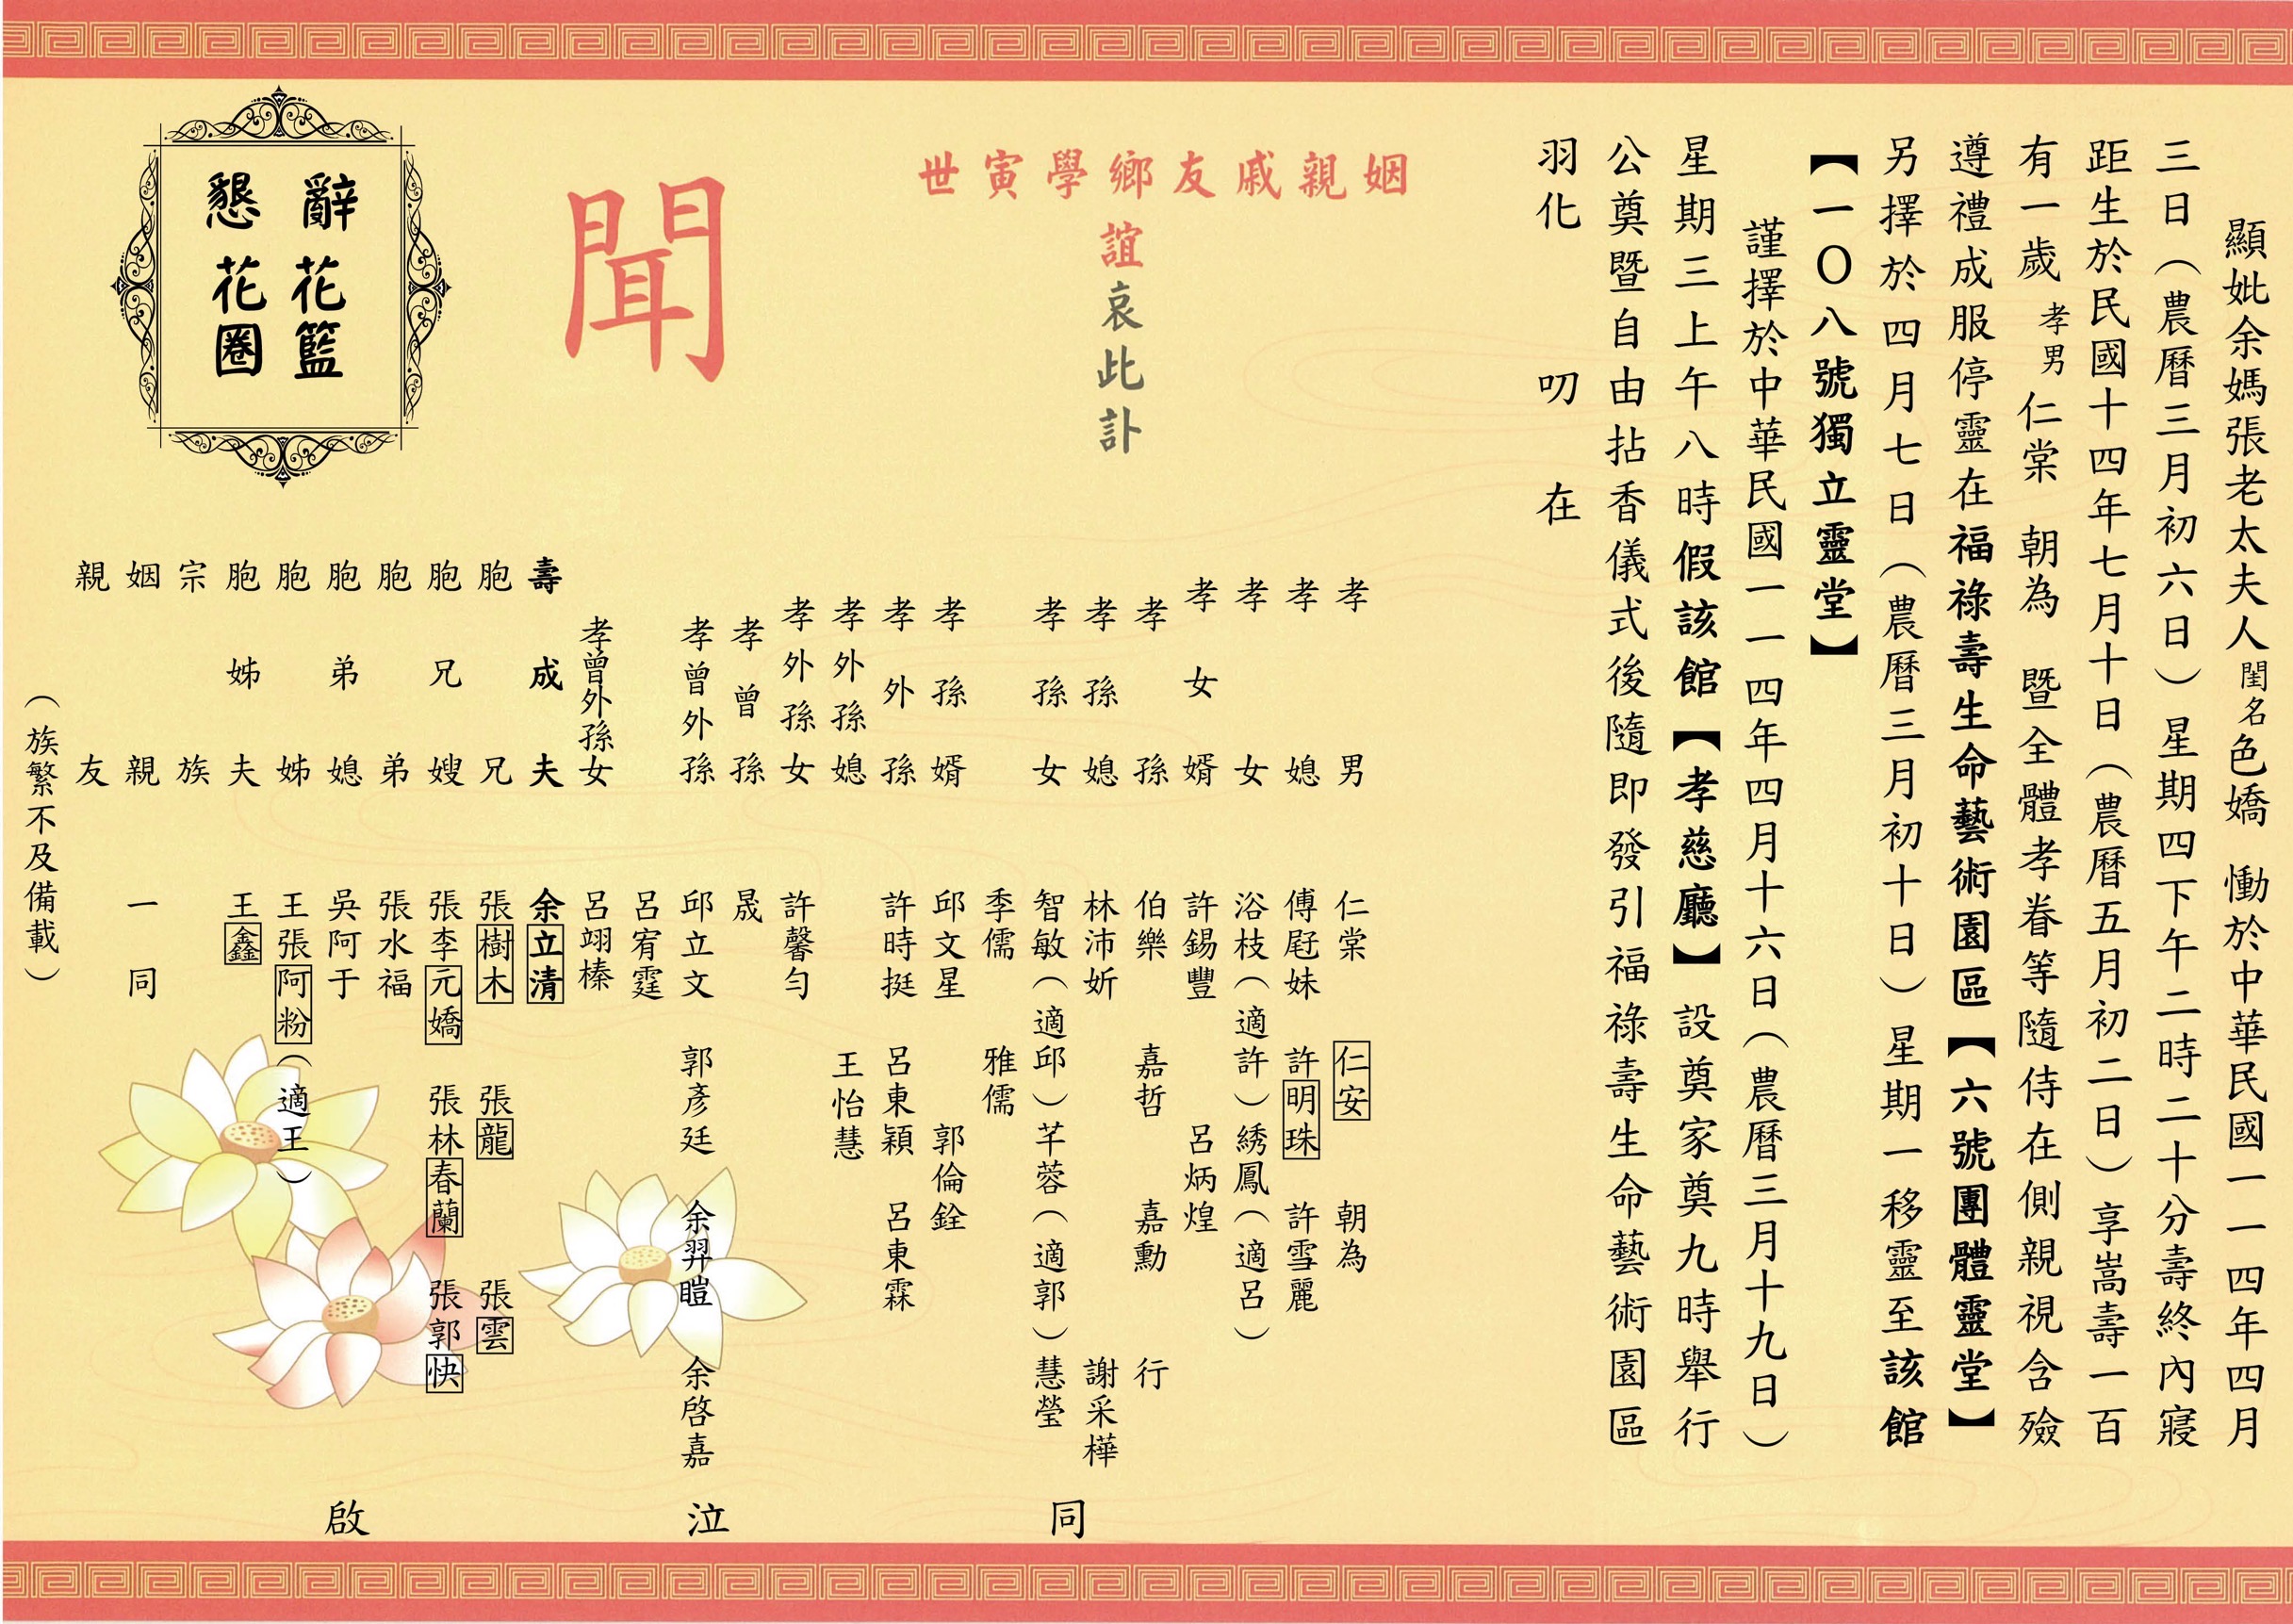 顯妣余媽張老太夫人閨名色嬌　慟於中華民國一一四年四月
三日（農曆三月初六日）星期四下午二時二十分壽終內寢
距生於民國十四年七月十日（農曆五月初二日）享嵩壽一百
有一歲　孝男　仁棠　朝為　暨全體孝眷等隨侍在側親視含殮
遵禮成服停靈在福祿壽生命藝術園區【六號團體靈堂】
另擇於四月七日（農曆三月初十日）星期一移靈至該館
【一〇八號獨立靈堂】
謹擇於中華民國一一四年四月十六日（農曆三月十九日）
星期三上午八時假該館【孝慈廳】設奠家奠九時舉行
公奠暨自由拈香儀式後隨即發引福祿壽生命藝術園區
羽化　叨在
姻親戚友鄉學寅世
誼哀此訃
聞
懇辭
花籃
花圈
孝男　仁棠　仁安　朝為
孝媳　傅屘妹　許明珠　許雪麗
孝女　浴枝（適許）綉鳳（適呂）
孝女婿　許錫豐　呂炳煌
孝孫　伯樂　嘉哲　嘉勳　行
孝孫媳　林沛妡　謝采樺
孝孫女　智敏（適邱）芊蓉（適郭）慧瑩
季儒　雅儒
孝孫婿　邱文星　郭倫銓
孝外孫　許時挺　呂東穎　呂東霖
孝外孫媳　王怡慧
孝外孫女　許馨勻
孝曾孫　晟
孝曾外孫　邱立文　郭彥廷　余羿暟　余啓嘉
呂宥霆
孝曾外孫女　呂翊榛
壽成夫　余立清
胞兄　張樹木　張龍　張雲
胞兄嫂　張李元嬌　張林春蘭　張郭快
胞弟　張水福
胞弟媳　吳阿于
胞姊　王張阿粉（適王）
胞姊夫　王鑫
宗族
姻親　一同
親友
（族繁不及備載）
同泣啟